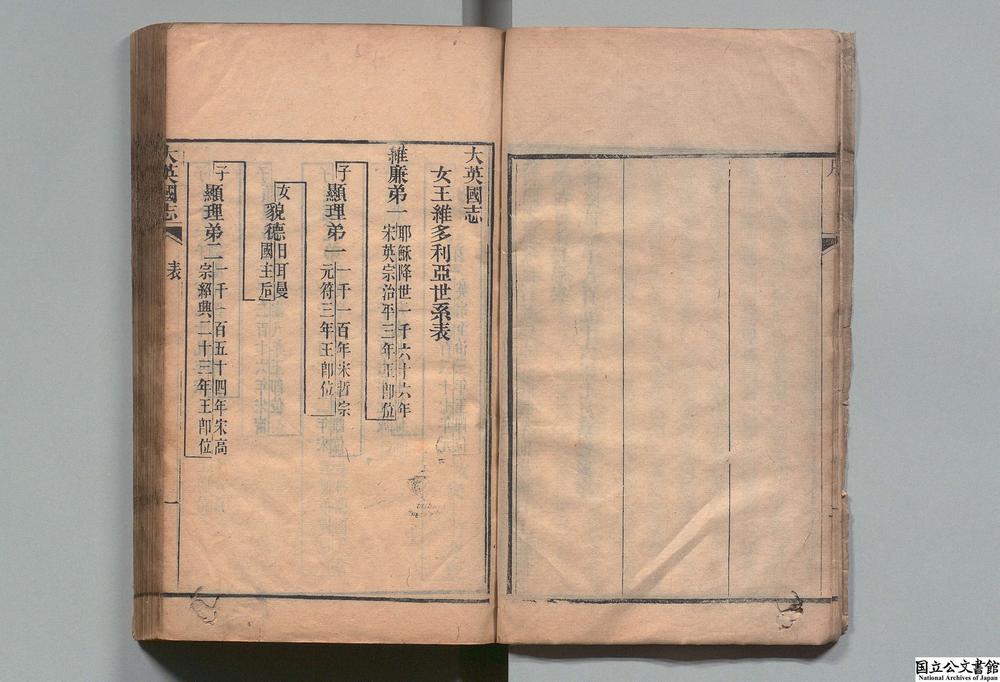 大英國志
女王維多利亞世系表
維廉弟一
耶穌降世一千六十六年
宋英宗治平三年王卽位
子
顯理弟一
一千一百年宋哲宗
元符三年王卽位
女
貌德
日耳曼
國主后
子
顯理弟二
一千一百五十四年宋高
宗紹興二十三年王卽位
大英國志
表
一
国立公文書館
National Archives of Japan